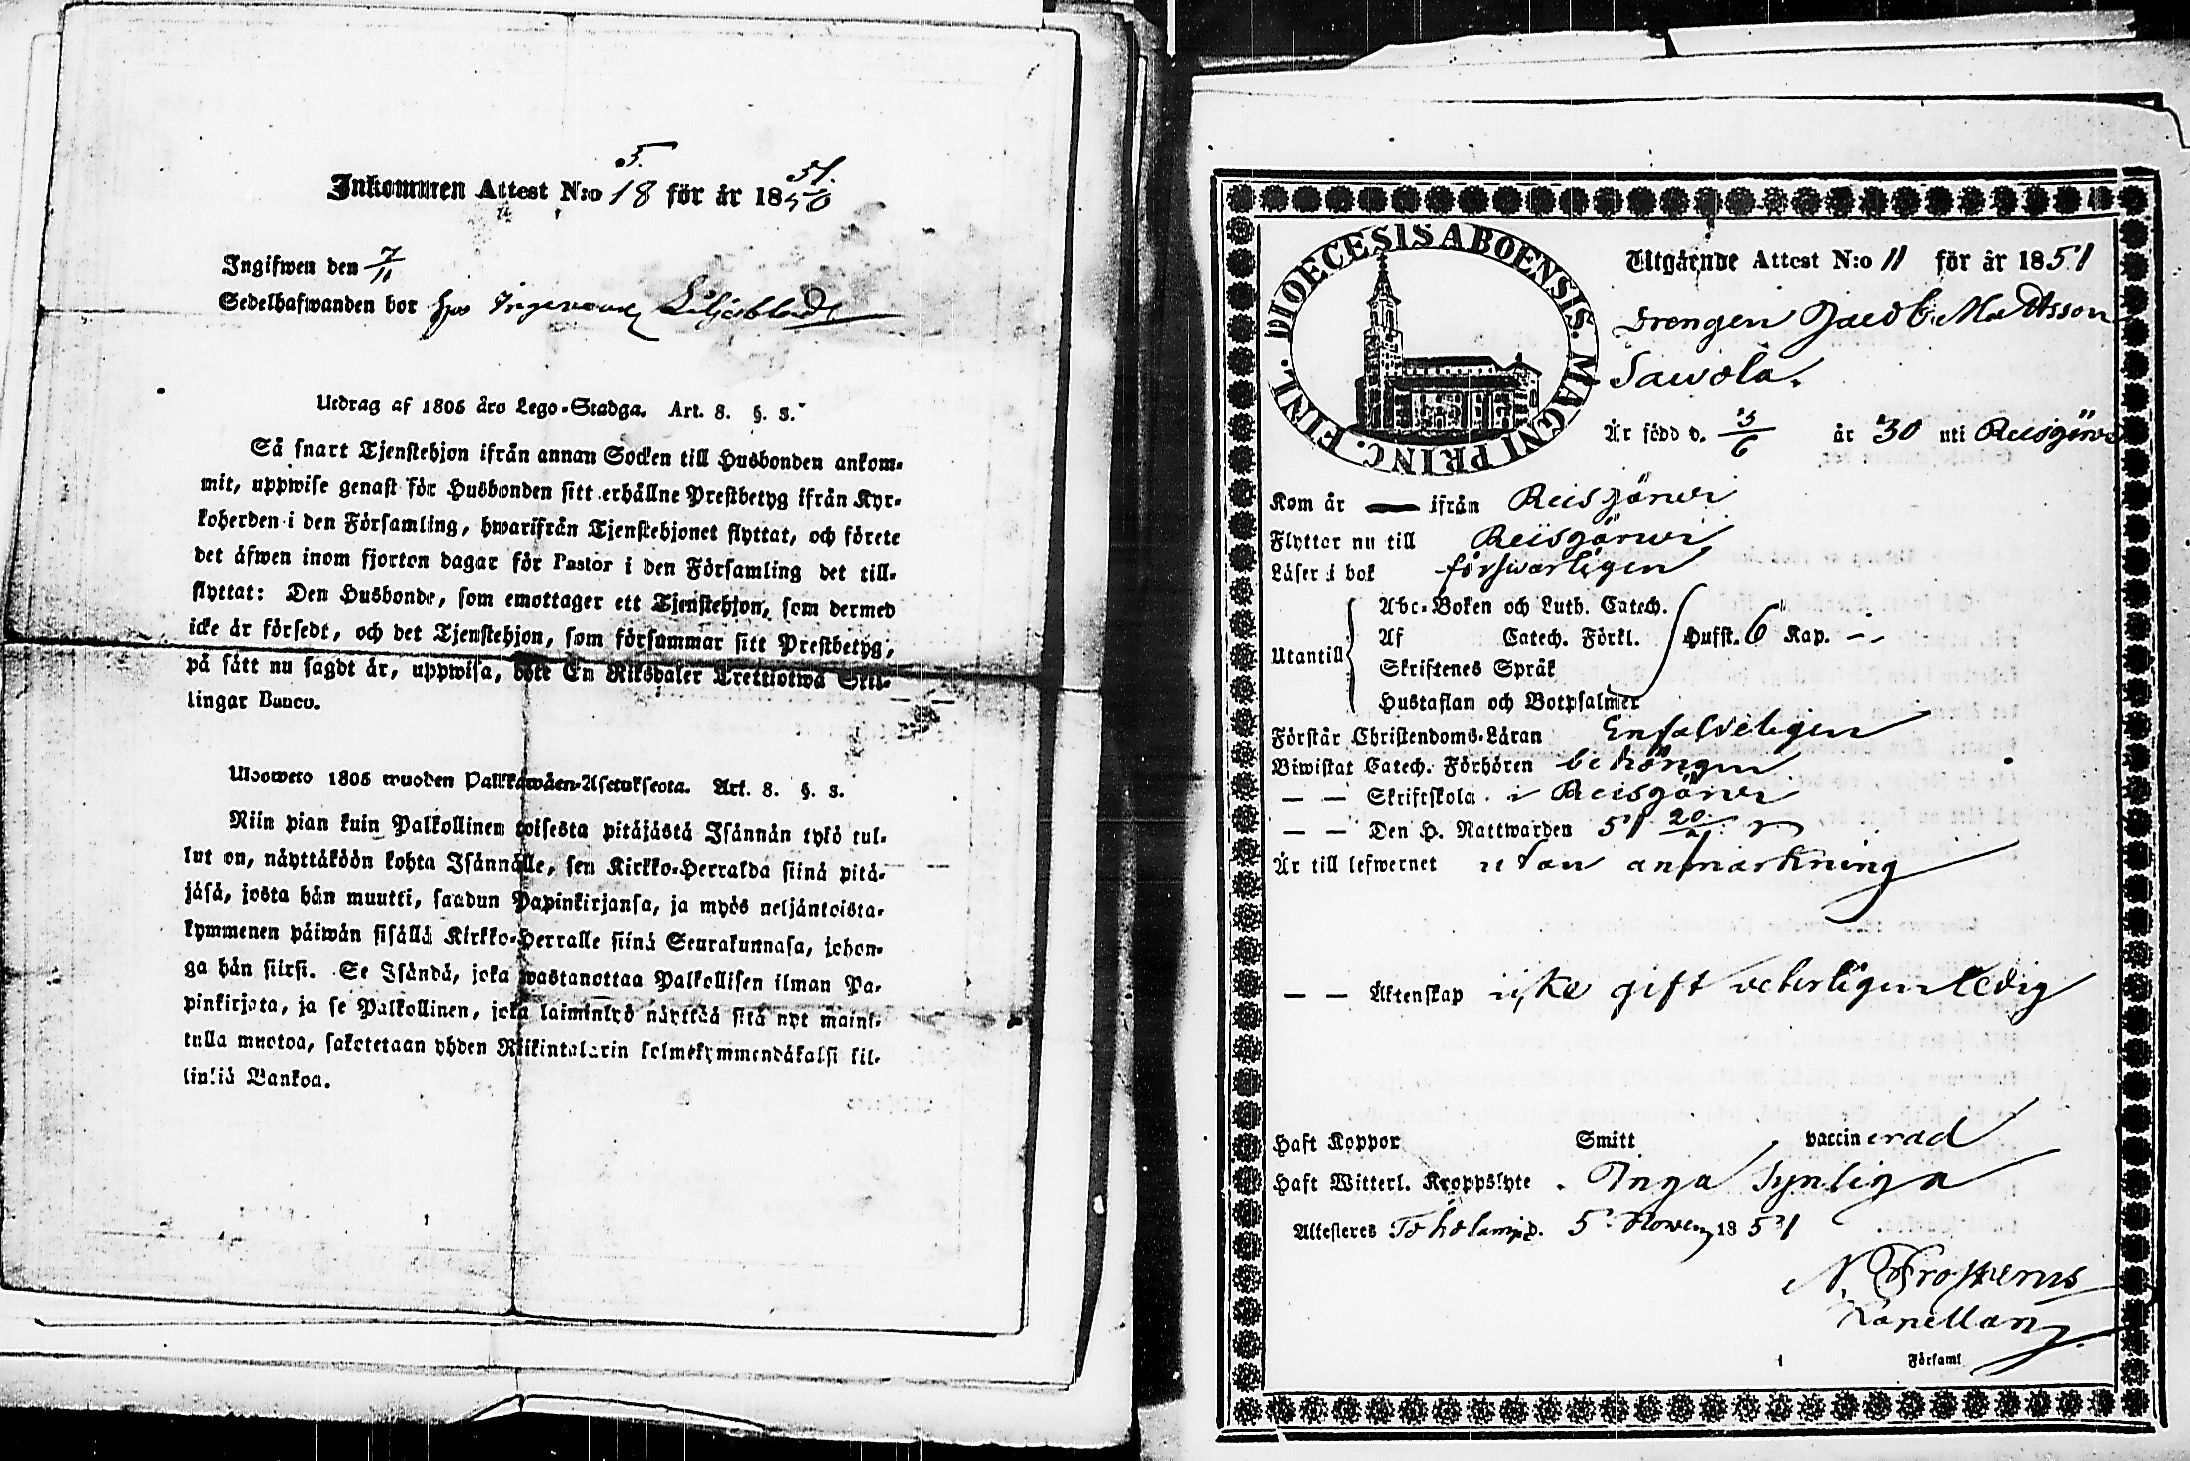 5. 51.
Inkommen Attest N:o 18 för år 1850
Ingifwen den 7/11
Sedelhafwanden bor hos
Utdrag af 1805 års Lego-Stadga. Art. 8. §. 3.
Så snart Tjenstehjon ifrån annan Socken till Husbonden ankom-
mit, uppwise genast för Husbonden sitt erhållne Prestbetyg ifrån Kyr-
koherden i den Församling, hwarifrån Tjenstehjonet flyttat, och förete
det äfwen inom fjorton dagar för Pastor i den Församling det till-
flyttat: Den Husbonde, som emottager ett Tjenstehjon, som dermed
icke är försedt, och det Tjenstehjon, som försummar sitt Prestbetyg,
på sätt nu sagdt är, uppwisa, böte En Riksdaler Trettiotwå Skil-
lingar Banco.
Ulosweto 1805 wuoden Palkkawäen-Asetuksesta. Art. 8. §. 3.
Niin pian kuin Palkollinen toisesta pitäjästä Isännän tykö tul-
lut on, näyttäköön kohta Isännälle, sen Kirkko-Herralda siinä pitä-
jäsä, josta hän muutti, saadun Papinkirjansa, ja myös neljäntoista-
kymmenen päiwän sisällä Kirkko-Herralle siinä Seurakunnasa, johon-
ga hän siirsi. Se Isändä, joka wastanottaa Palkollisen ilman Pa-
pinkirjata, ja se Palkollinen, joka laiminlyö näyttää sitä nyt mainit-
tulla muotoa, sakotetaan yhden Riikintalarin kolmekymmendäkaksi kil-
linkiä Bankoa.
DIOECESIS ABOENSIS. MAGNI PRINC. FINL.
Utgående Attest N:o 11 för år 1851
Drengen Jacob Mattsson
Sawola.
Är född d. 3/6 år 30 uti Reisjärwi
Kom år — ifrån Reisjärwi
Flyttar nu till Reisjärwi
Läser i bok förswarligen
Utantill
Abc-Boken och Luth. Catech.
Af Catech. Förkl. Hufst. 6 Kap. --
Skriftenes Språk
Hustaflan och Botpsalmer
Förstår Christendoms-Läran Enfaldeligen
Biwistat Catech. Förhören behörigen
— — Skriftskola i Reisjärwi
— — Den H. Nattwarden 51
Är till lefwernet utan anmärkning
— — Äktenskap icke gift weterligen ledig
Haft Koppor Smitt vaccinerad
Haft Witterl. Kroppslyte Inga synliga
Attesteres Toholampi d. 5 Nowem 1851
N. Frosterus
Kapellan
Församl